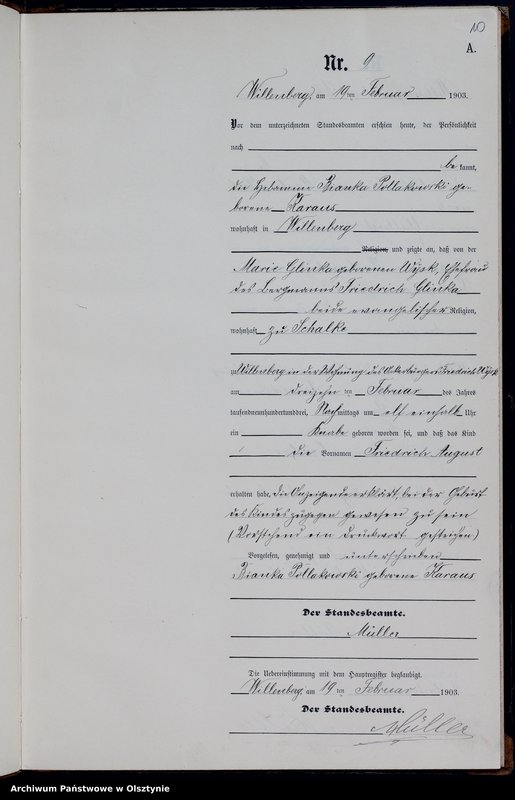 10
A.
Nr. 9
Willenberg, am 19ten Februar 1903.
Vor dem unterzeichneten Standesbeamten erschien heute, der Persönlichkeit
nach
bekannt,
die Hebamme Bianka Pollakowski ge-
borene Karaus
wohnhaft in Willenberg
Religion, und zeigte an, daß von der
Marie Glinka geborenen Wysk, Ehefrau
des Bergmanns Friedrich Glinka
beide evangelischer Religion,
wohnhaft zu Schalke
zu Willenberg in der Wohnung des Ackerbürgers Friedrich Wysk
am dreizehn ten Februar des Jahres
tausendneunhundertunddrei, Nachmittags um elf einhalb Uhr
ein Knabe geboren worden sei, und daß das Kind
die Vornamen Friedrich August
erhalten habe. Die Anzeigende erklärt, bei der Geburt
des Kindes zugegen gewesen zu sein
(Vorstehend ein Druckwort gestrichen)
Vorgelesen, genehmigt und unterschrieben
Bianka Pollakowski geborene Karaus
Der Standesbeamte.
Müller
Die Uebereinstimmung mit dem Hauptregister beglaubigt.
Willenberg, am 19ten Februar 1903.
Der Standesbeamte.
Müller
Archiwum Państwowe w Olsztynie